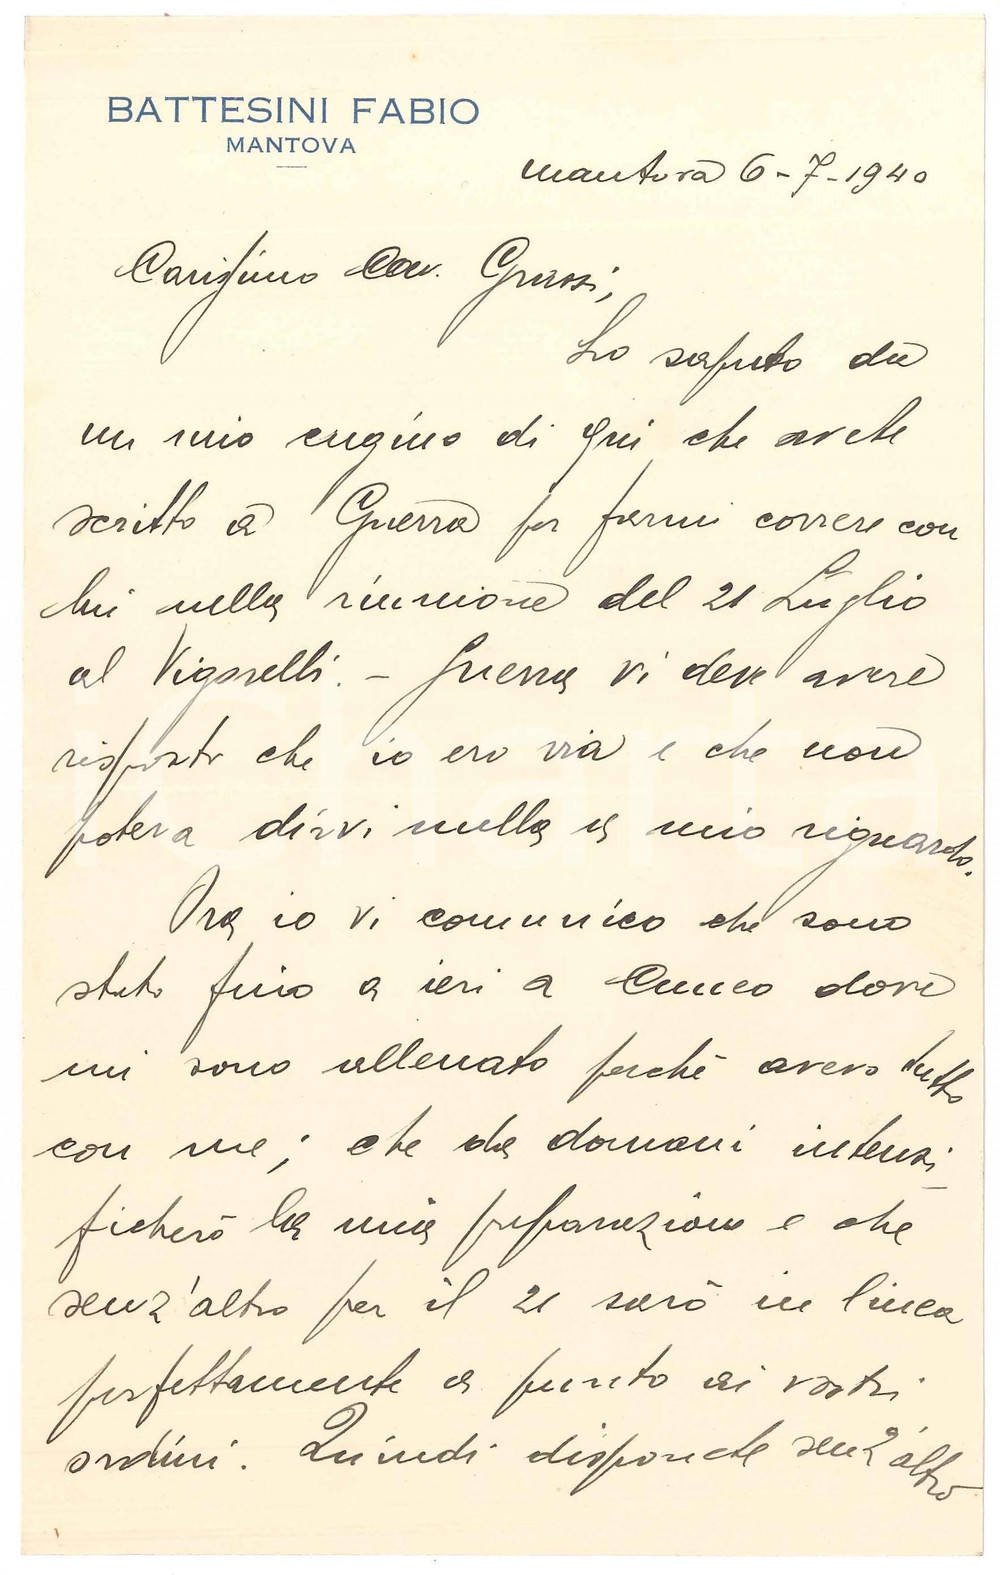 BATTESINI FABIO
MANTOVA
Mantova 6-7-1940
Carissimo Cav. Grassi,
Ho saputo da
un mio cugino di qui che avete
scritto a Guerra per farmi correre con
lui nella riunione del 21 Luglio
al Vigorelli. - Guerra vi deve avere
risposto che io ero via e che non
poteva dirvi nulla a mio riguardo.
Ora io vi comunico che sono
stato fino a ieri a Cuneo dove
mi sono allenato perché avevo tutto
con me; che da domani intensi-
ficherò la mia preparazione e che
senz'altro per il 21 sarò in linea
perfettamente a punto ai vostri
ordini. Quindi disponete senz'altro